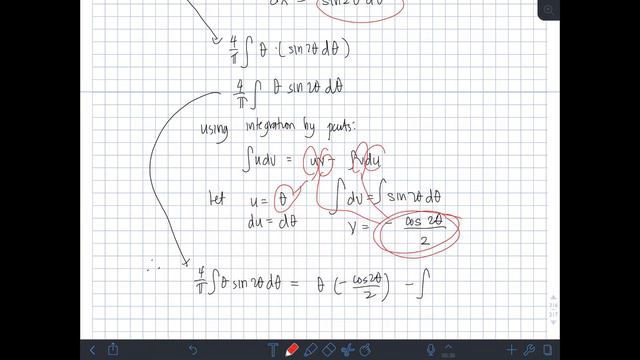 dx = sin2θ dθ
4/π ∫ θ · (sin2θ dθ)
4/π ∫ θ sin2θ dθ
using integration by parts:
∫ u dv = uv - ∫ v du
Let u = θ ∫ dv = ∫ sin2θ dθ
du = dθ v = - cos 2θ / 2
∴ 4/π ∫ θ sin 2θ dθ = θ (- cos2θ / 2) - ∫
216
217